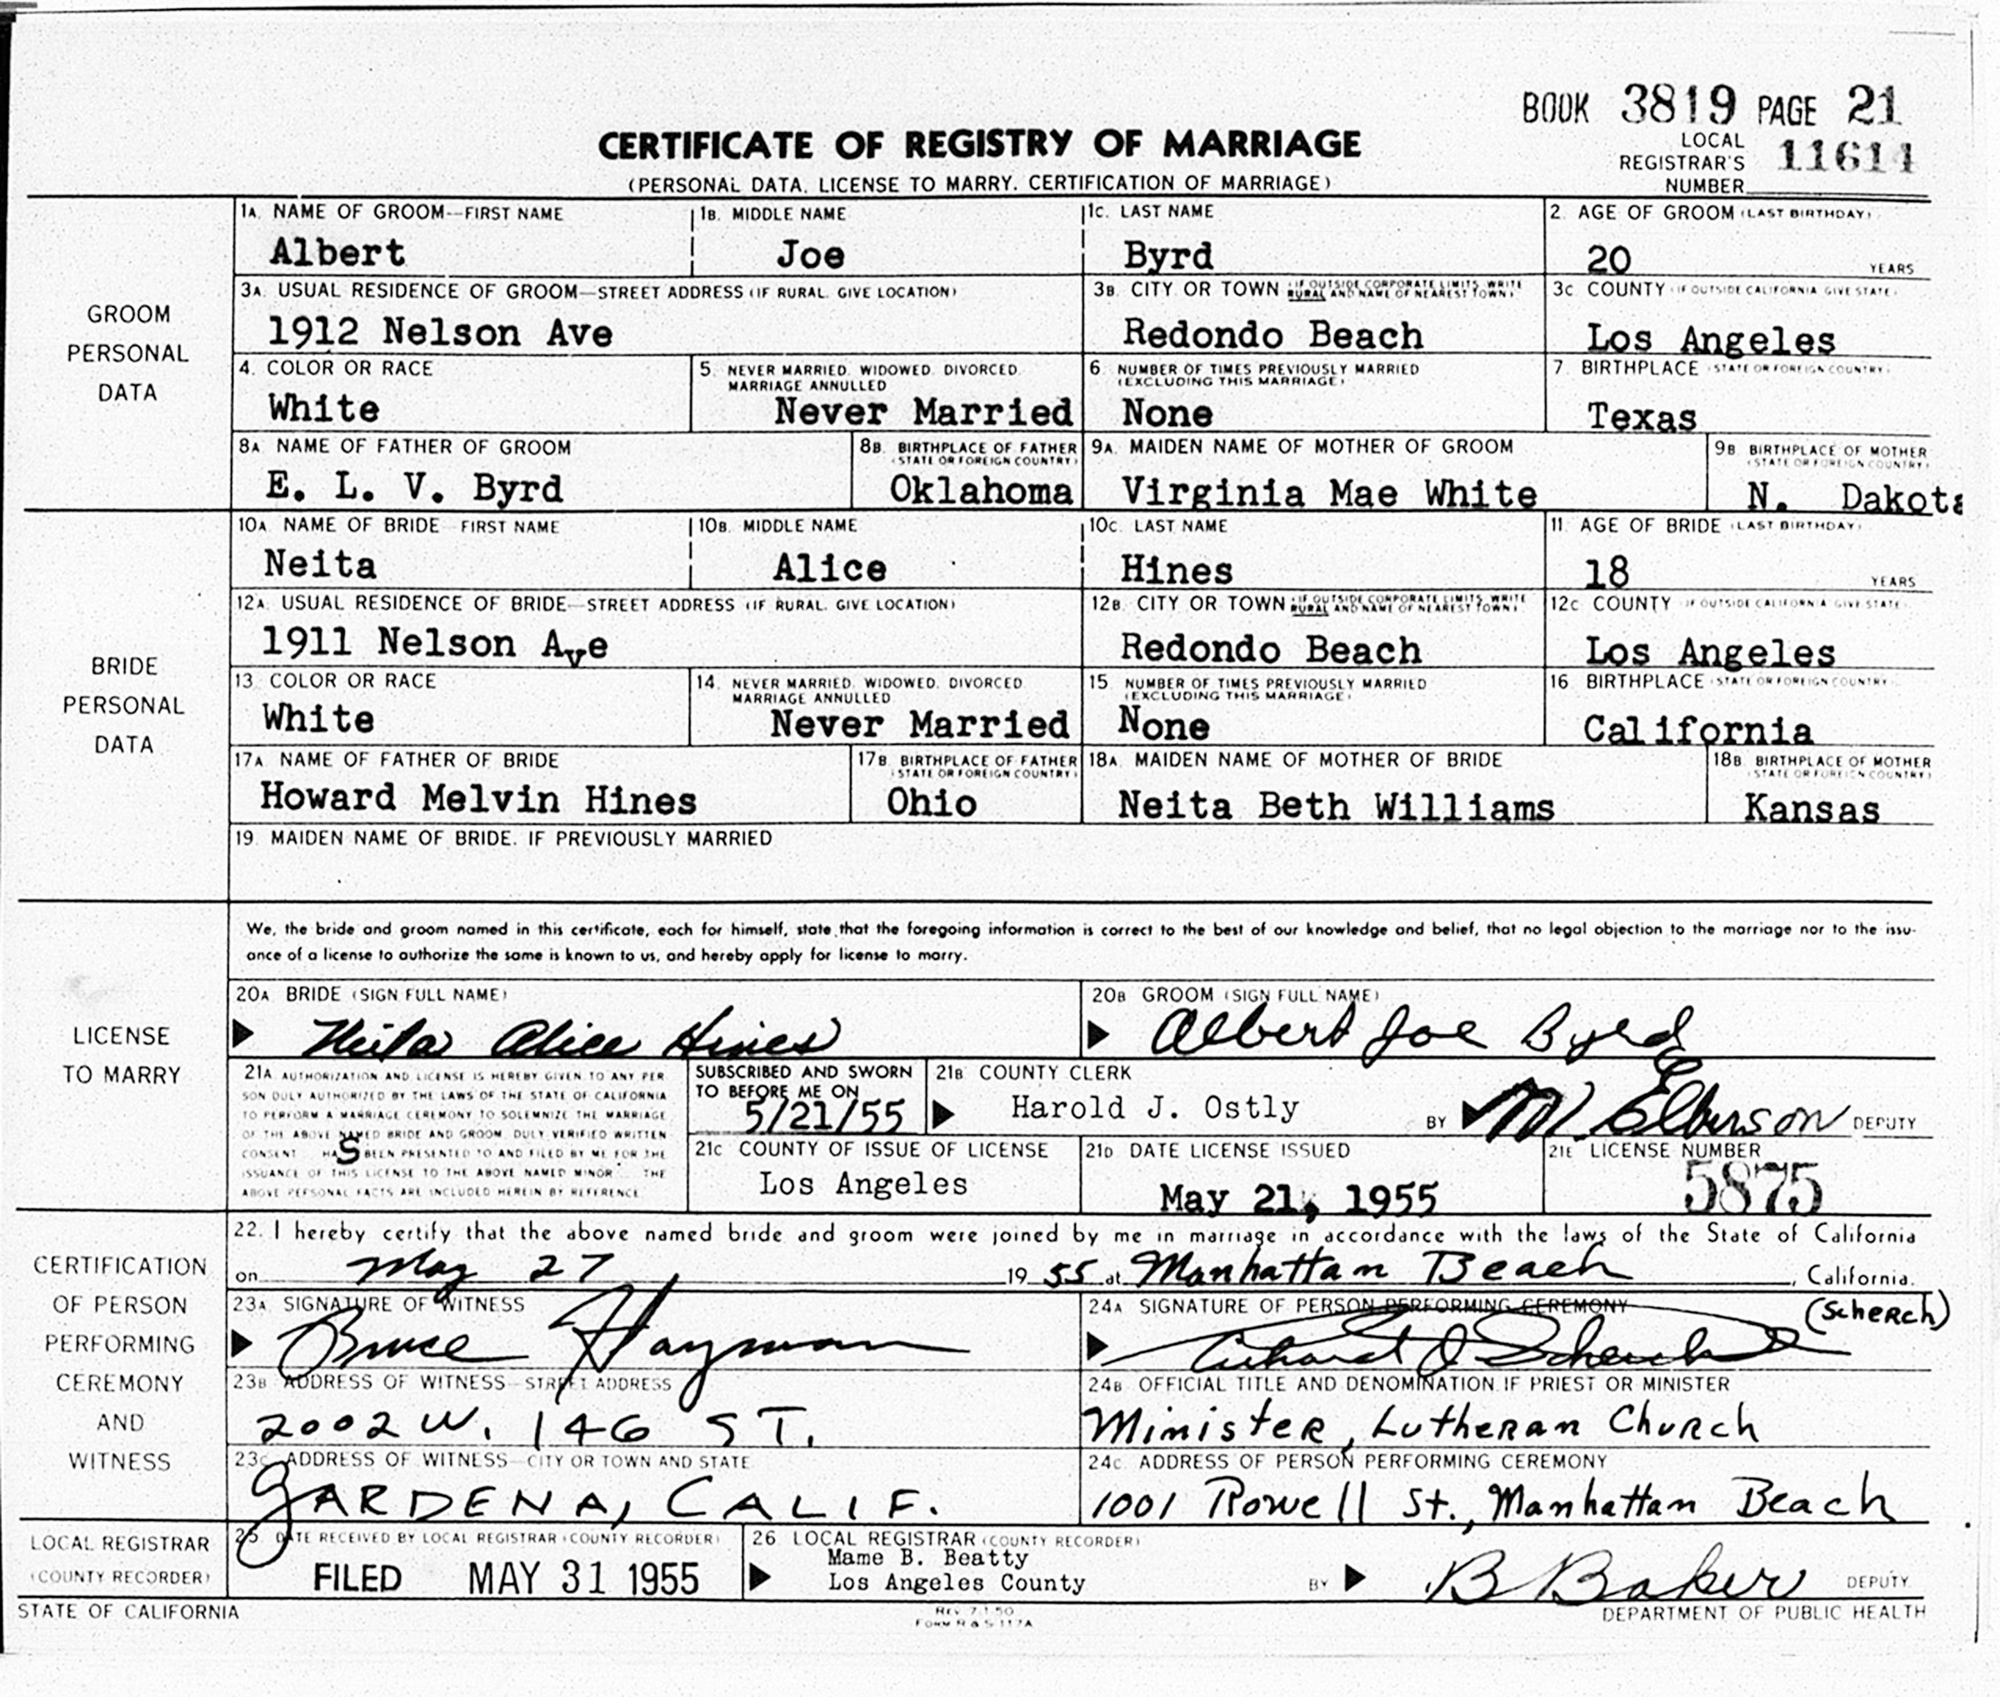 BOOK 3819 PAGE 21
CERTIFICATE OF REGISTRY OF MARRIAGE
LOCAL REGISTRAR'S NUMBER 11611
(PERSONAL DATA, LICENSE TO MARRY, CERTIFICATION OF MARRIAGE)
GROOM PERSONAL DATA
1A. NAME OF GROOM—FIRST NAME 1B. MIDDLE NAME 1C. LAST NAME 2. AGE OF GROOM (LAST BIRTHDAY)
Albert Joe Byrd 20 YEARS
3A. USUAL RESIDENCE OF GROOM—STREET ADDRESS (IF RURAL, GIVE LOCATION) 3B. CITY OR TOWN (IF OUTSIDE CORPORATE LIMITS, WRITE RURAL AND NAME OF NEAREST TOWN) 3C COUNTY (IF OUTSIDE CALIFORNIA GIVE STATE)
1912 Nelson Ave Redondo Beach Los Angeles
4. COLOR OR RACE 5. NEVER MARRIED, WIDOWED, DIVORCED, MARRIAGE ANNULLED 6. NUMBER OF TIMES PREVIOUSLY MARRIED (EXCLUDING THIS MARRIAGE) 7. BIRTHPLACE (STATE OR FOREIGN COUNTRY)
White Never Married None Texas
8A NAME OF FATHER OF GROOM 8B. BIRTHPLACE OF FATHER (STATE OR FOREIGN COUNTRY) 9A. MAIDEN NAME OF MOTHER OF GROOM 9B BIRTHPLACE OF MOTHER (STATE OR FOREIGN COUNTRY)
E. L. V. Byrd Oklahoma Virginia Mae White N. Dakota
BRIDE PERSONAL DATA
10A. NAME OF BRIDE FIRST NAME 10B. MIDDLE NAME 10C. LAST NAME 11. AGE OF BRIDE (LAST BIRTHDAY)
Neita Alice Hines 18 YEARS
12A. USUAL RESIDENCE OF BRIDE—STREET ADDRESS (IF RURAL, GIVE LOCATION) 12B. CITY OR TOWN (IF OUTSIDE CORPORATE LIMITS, WRITE RURAL AND NAME OF NEAREST TOWN) 12C COUNTY (IF OUTSIDE CALIFORNIA GIVE STATE)
1911 Nelson Ave Redondo Beach Los Angeles
13. COLOR OR RACE 14. NEVER MARRIED, WIDOWED, DIVORCED MARRIAGE ANNULLED 15 NUMBER OF TIMES PREVIOUSLY MARRIED (EXCLUDING THIS MARRIAGE) 16 BIRTHPLACE (STATE OR FOREIGN COUNTRY)
White Never Married None California
17A NAME OF FATHER OF BRIDE 17B BIRTHPLACE OF FATHER (STATE OR FOREIGN COUNTRY) 18A. MAIDEN NAME OF MOTHER OF BRIDE 18B. BIRTHPLACE OF MOTHER (STATE OR FOREIGN COUNTRY)
Howard Melvin Hines Ohio Neita Beth Williams Kansas
19. MAIDEN NAME OF BRIDE, IF PREVIOUSLY MARRIED
LICENSE TO MARRY
We, the bride and groom named in this certificate, each for himself, state that the foregoing information is correct to the best of our knowledge and belief, that no legal objection to the marriage nor to the issu-
ance of a license to authorize the same is known to us, and hereby apply for license to marry.
20A BRIDE (SIGN FULL NAME) 20B GROOM (SIGN FULL NAME)
Neita Alice Hines Albert Joe Byrd
21A AUTHORIZATION AND LICENSE IS HEREBY GIVEN TO ANY PER-
SON DULY AUTHORIZED BY THE LAWS OF THE STATE OF CALIFORNIA
TO PERFORM A MARRIAGE CEREMONY TO SOLEMNIZE THE MARRIAGE
OF THE ABOVE NAMED BRIDE AND GROOM. DULY VERIFIED WRITTEN
CONSENT HAS BEEN PRESENTED TO AND FILED BY ME FOR THE
ISSUANCE OF THIS LICENSE TO THE ABOVE NAMED MINOR. THE
ABOVE PERSONAL FACTS ARE INCLUDED HEREIN BY REFERENCE
SUBSCRIBED AND SWORN TO BEFORE ME ON 5/21/55
21B COUNTY CLERK
Harold J. Ostly BY M. Elberson DEPUTY
21C COUNTY OF ISSUE OF LICENSE 21D DATE LICENSE ISSUED 21E LICENSE NUMBER
Los Angeles May 21, 1955 5875
CERTIFICATION OF PERSON PERFORMING CEREMONY AND WITNESS
22. I hereby certify that the above named bride and groom were joined by me in marriage in accordance with the laws of the State of California
on May 27, 19 55 at Manhattan Beach, California.
23A SIGNATURE OF WITNESS 24A SIGNATURE OF PERSON PERFORMING CEREMONY (Scherch)
Bruce Hayman Richard J Scherch
23B ADDRESS OF WITNESS—STREET ADDRESS 24B OFFICIAL TITLE AND DENOMINATION IF PRIEST OR MINISTER
2002 W. 146 ST. Minister, Lutheran Church
23C ADDRESS OF WITNESS—CITY OR TOWN AND STATE 24C ADDRESS OF PERSON PERFORMING CEREMONY
GARDENA, CALIF. 1001 Rowell St., Manhattan Beach
LOCAL REGISTRAR (COUNTY RECORDER)
25 DATE RECEIVED BY LOCAL REGISTRAR (COUNTY RECORDER) 26 LOCAL REGISTRAR (COUNTY RECORDER)
FILED MAY 31 1955
Mame B. Beatty
Los Angeles County BY B Baker DEPUTY
STATE OF CALIFORNIA REV. 7-1-50 DEPARTMENT OF PUBLIC HEALTH
FORM R & S 117A